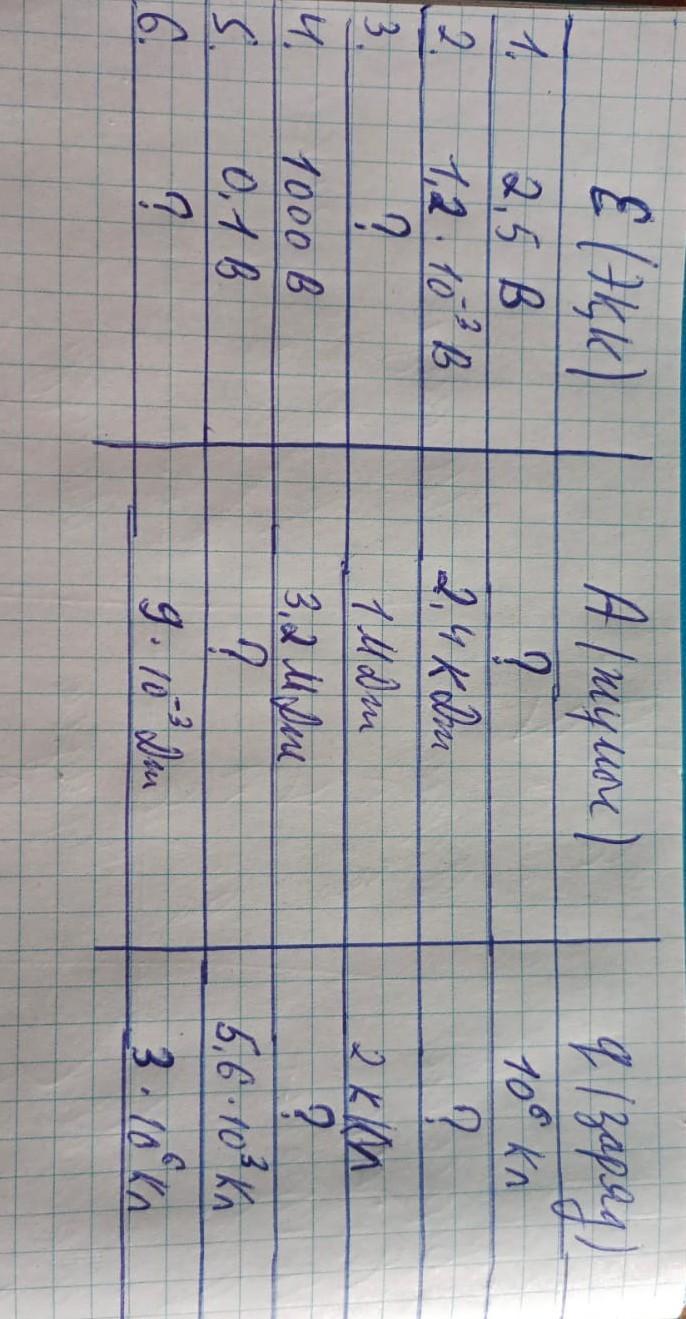 ℰ (ЭҚК) A (жұмыс) q (заряд)
1. 2,5 В ? 10⁶ Кл
2. 1,2 · 10⁻³ В 2,4 кДж ?
3. ? 1 МДж 2 кКл
4. 1000 В 3,2 МДж ?
5. 0,1 В ? 5,6 · 10³ Кл
6. ? 9 · 10⁻³ Дж 3 · 10⁶ Кл